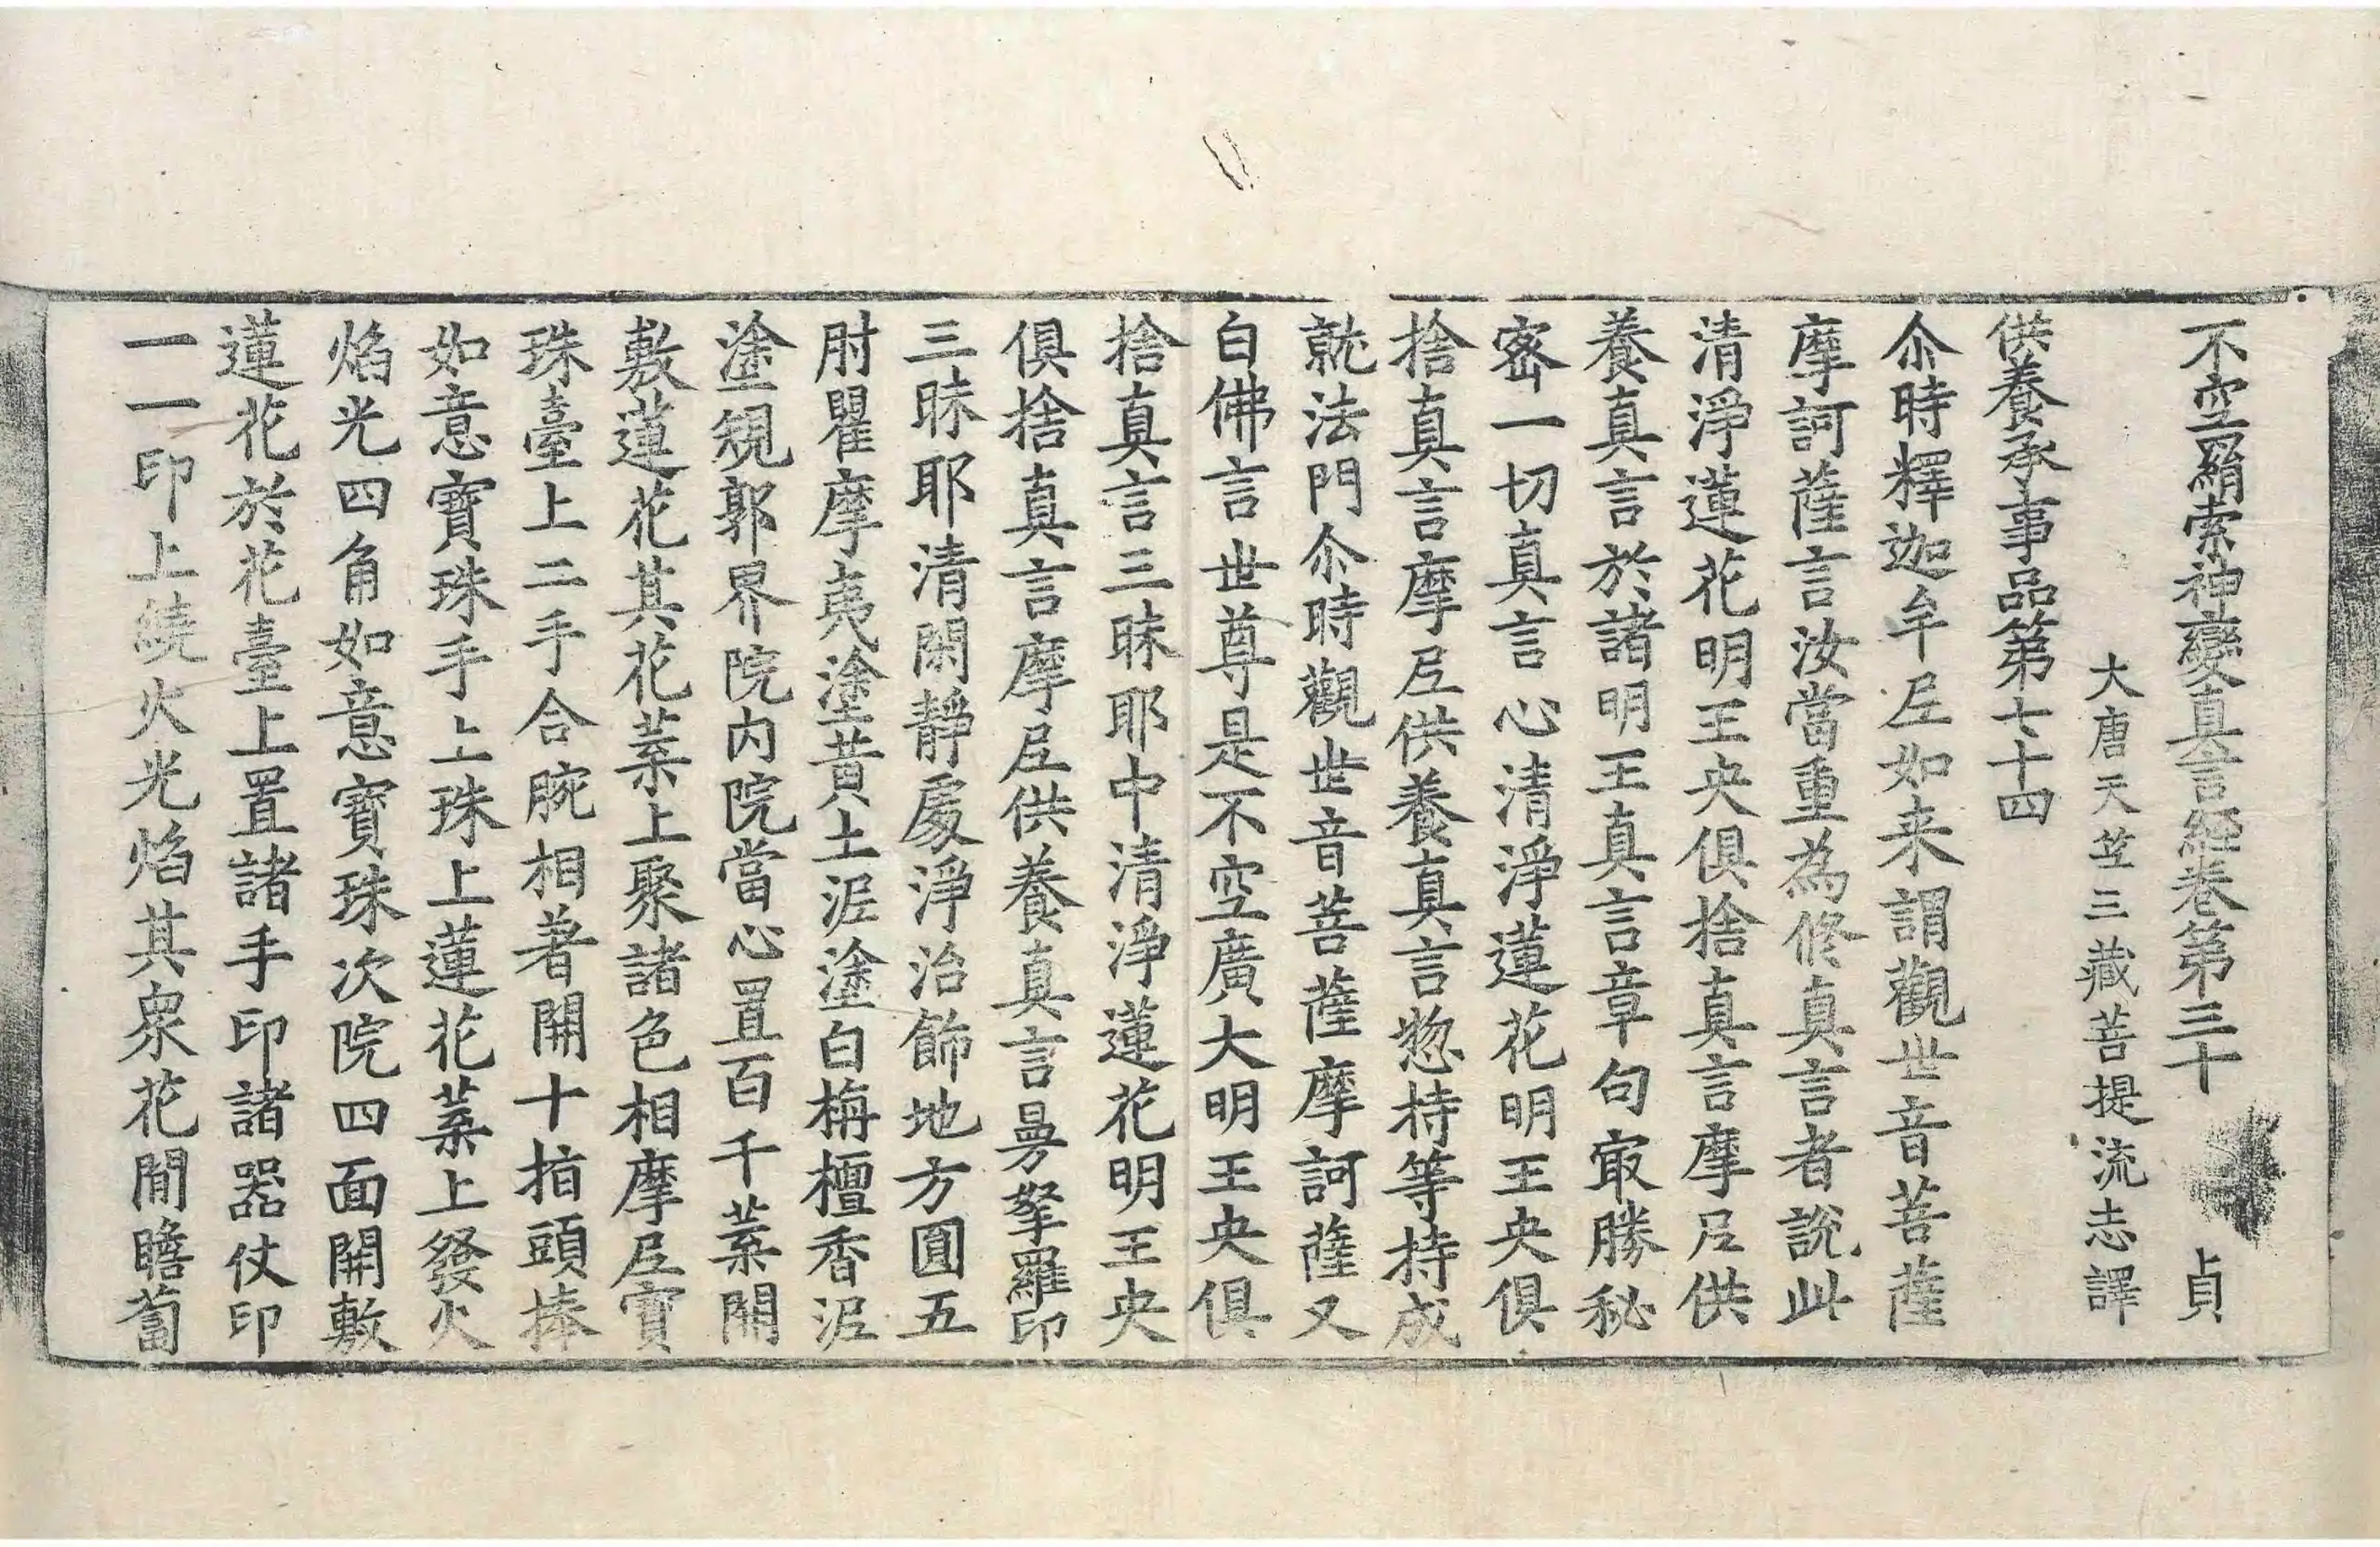 不空羂索神變真言經卷第三十　貞
大唐天竺三藏菩提流志譯
供養承事品第七十四
尒時釋迦牟𡰱如来謂觀世音菩薩
摩訶薩言汝當重為修真言者說此
清淨蓮花明王央俱捨真言摩𡰱供
養真言於諸明王真言章句冣勝秘
密一切真言心清淨蓮花明王央俱
捨真言摩𡰱供養真言惣持等持成
就法門尒時觀世音菩薩摩訶薩又
白佛言世尊是不空廣大明王央俱
捨真言三昧耶中清淨蓮花明王央
俱捨真言摩𡰱供養真言曼拏羅印
三昧耶清閑靜處淨治飾地方圓五
肘瞿摩夷塗黃土泥塗白栴檀香泥
塗規郭界院內院當心置百千葉開
敷蓮花其花葉上聚諸色相摩𡰱寶
珠臺上二手合腕相著開十指頭捧
如意寶珠手上珠上蓮花葉上發火
焰光四角如意寶珠次院四面開敷
蓮花於花臺上置諸手印諸器仗印
一一印上繞火光焰其衆花間瞻蔔